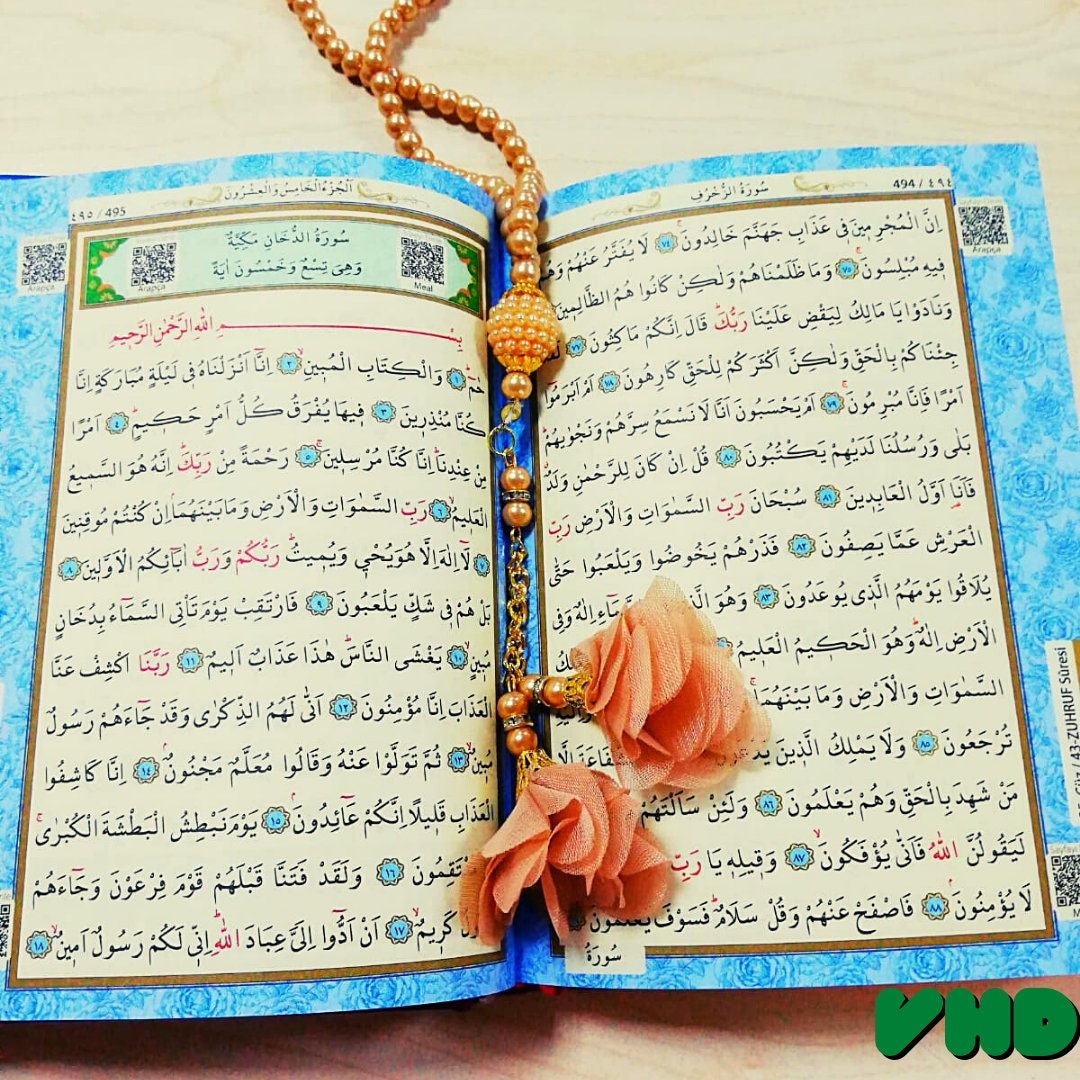 494 / ٤٩٤
سُورَةُ الزُّخْرُفِ
Arapça
اِنَّ الْمُجْرِمٖينَ فٖى عَذَابِ جَهَنَّمَ خَالِدُونَ ﴿٧٤﴾ لَا يُفَتَّرُ عَنْهُمْ وَهُمْ
فٖيهِ مُبْلِسُونَ ﴿٧٥﴾ وَمَا ظَلَمْنَاهُمْ وَلٰكِنْ كَانُوا هُمُ الظَّالِمٖينَ
وَنَادَوْا يَا مَالِكُ لِيَقْضِ عَلَيْنَا رَبُّكَ قَالَ اِنَّكُمْ مَاكِثُونَ ﴿٧٧﴾
جِئْنَاكُمْ بِالْحَقِّ وَلٰكِنَّ اَكْثَرَكُمْ لِلْحَقِّ كَارِهُونَ ﴿٧٨﴾ اَمْ اَبْرَمُوا
اَمْرًا فَاِنَّا مُبْرِمُونَ ﴿٧٩﴾ اَمْ يَحْسَبُونَ اَنَّا لَا نَسْمَعُ سِرَّهُمْ وَنَجْوٰيهُمْ
بَلٰى وَرُسُلُنَا لَدَيْهِمْ يَكْتُبُونَ ﴿٨٠﴾ قُلْ اِنْ كَانَ لِلرَّحْمٰنِ وَلَدٌ
فَاَنَا۬ اَوَّلُ الْعَابِدٖينَ ﴿٨١﴾ سُبْحَانَ رَبِّ السَّمٰوَاتِ وَالْاَرْضِ رَبِّ
الْعَرْشِ عَمَّا يَصِفُونَ ﴿٨٢﴾ فَذَرْهُمْ يَخُوضُوا وَيَلْعَبُوا حَتّٰى
يُلَاقُوا يَوْمَهُمُ الَّذٖى يُوعَدُونَ ﴿٨٣﴾ وَهُوَ اِلٰهٌ وَفِى
الْاَرْضِ اِلٰهٌ وَهُوَ الْحَكٖيمُ الْعَلٖيمُ
السَّمٰوَاتِ وَالْاَرْضِ وَمَا بَيْنَهُمَا
تُرْجَعُونَ ﴿٨٥﴾ وَلَا يَمْلِكُ الَّذٖينَ
مَنْ شَهِدَ بِالْحَقِّ وَهُمْ يَعْلَمُونَ ﴿٨٦﴾ وَلَئِنْ سَاَلْتَهُمْ
لَيَقُولُنَّ اللّٰهُ فَاَنّٰى يُؤْفَكُونَ ﴿٨٧﴾ وَقٖيلِهٖ يَا رَبِّ
لَا يُؤْمِنُونَ ﴿٨٨﴾ فَاصْفَحْ عَنْهُمْ وَقُلْ سَلَامٌ فَسَوْفَ يَعْلَمُونَ
سُورَةُ
43-ZUHRUF Sûresi
٤٩٥ / 495
اَلْجُزْءُ الْخَامِسُ وَالْعِشْرُونَ
Arapça
سُورَةُ الدُّخَانِ مَكِّيَّةٌ
وَهِىَ تِسْعٌ وَخَمْسُونَ اٰيَةً
Meal
Arapça
بِسْمِ اللّٰهِ الرَّحْمٰنِ الرَّحٖيمِ
حٰمٓ ﴿١﴾ وَالْكِتَابِ الْمُبٖينِ ﴿٢﴾ اِنَّٓا اَنْزَلْنَاهُ فٖى لَيْلَةٍ مُبَارَكَةٍ اِنَّا
كُنَّا مُنْذِرٖينَ ﴿٣﴾ فٖيهَا يُفْرَقُ كُلُّ اَمْرٍ حَكٖيمٍ ﴿٤﴾ اَمْرًا
مِنْ عِنْدِنَا اِنَّا كُنَّا مُرْسِلٖينَ ﴿٥﴾ رَحْمَةً مِنْ رَبِّكَ اِنَّهُ هُوَ السَّمٖيعُ
الْعَلٖيمُ ﴿٦﴾ رَبِّ السَّمٰوَاتِ وَالْاَرْضِ وَمَا بَيْنَهُمَا اِنْ كُنْتُمْ مُوقِنٖينَ
﴿٧﴾ لَٓا اِلٰهَ اِلَّا هُوَ يُحْيٖ وَيُمٖيتُ رَبُّكُمْ وَرَبُّ اٰبَٓائِكُمُ الْاَوَّلٖينَ ﴿٨﴾
بَلْ هُمْ فٖى شَكٍّ يَلْعَبُونَ ﴿٩﴾ فَارْتَقِبْ يَوْمَ تَاْتِى السَّمَٓاءُ بِدُخَانٍ
مُبٖينٍ ﴿١٠﴾ يَغْشَى النَّاسَ هٰذَا عَذَابٌ اَلٖيمٌ ﴿١١﴾ رَبَّنَا اكْشِفْ عَنَّا
الْعَذَابَ اِنَّا مُؤْمِنُونَ ﴿١٢﴾ اَنّٰى لَهُمُ الذِّكْرٰى وَقَدْ جَٓاءَهُمْ رَسُولٌ
مُبٖينٌ ﴿١٣﴾ ثُمَّ تَوَلَّوْا عَنْهُ وَقَالُوا مُعَلَّمٌ مَجْنُونٌ ﴿١٤﴾ اِنَّا كَاشِفُوا
الْعَذَابِ قَلٖيلًا اِنَّكُمْ عَٓائِدُونَ ﴿١٥﴾ يَوْمَ نَبْطِشُ الْبَطْشَةَ الْكُبْرٰى
﴿١٦﴾ وَلَقَدْ فَتَنَّا قَبْلَهُمْ قَوْمَ فِرْعَوْنَ وَجَٓاءَهُمْ
كَرٖيمٌ ﴿١٧﴾ اَنْ اَدُّٓوا اِلَىَّ عِبَادَ اللّٰهِ اِنّٖى لَكُمْ رَسُولٌ اَمٖينٌ ﴿١٨﴾
VHD